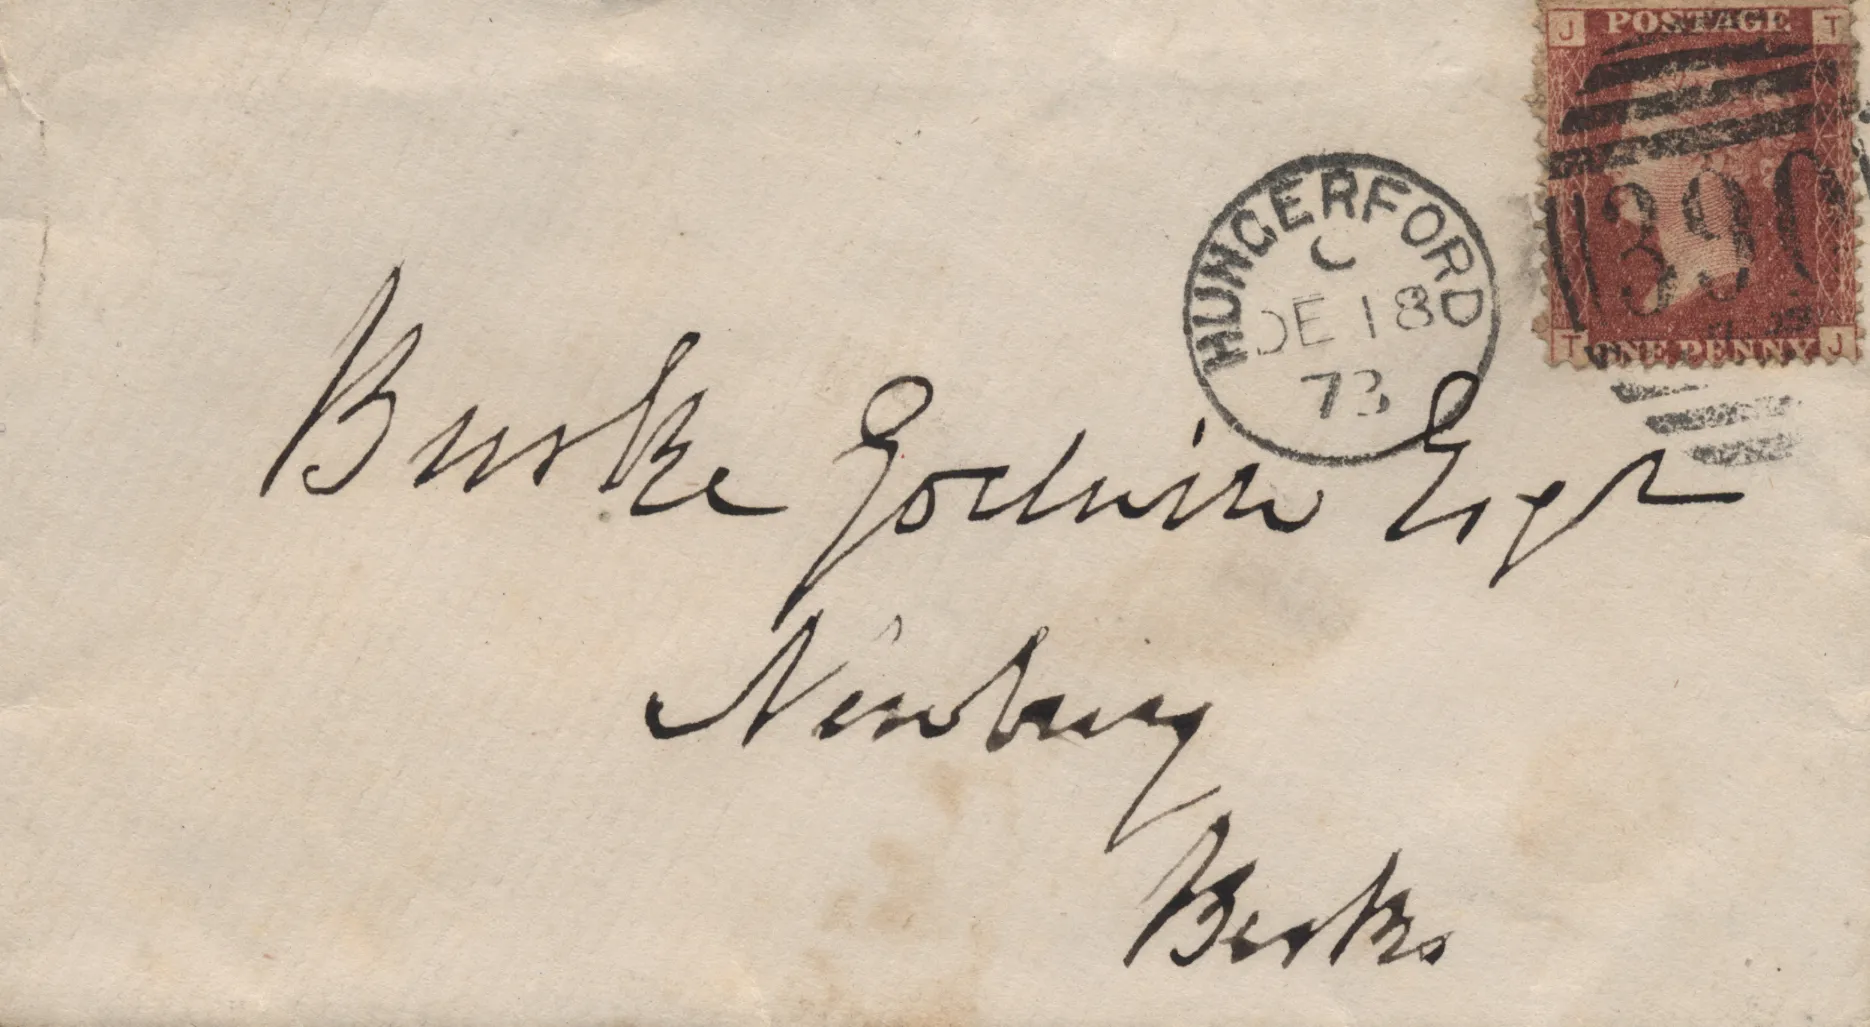 J POSTAGE T
390
T ONE PENNY J
HUNGERFORD
C
DE 18
73
Burke Godwin Esqr
Newbury
Berks